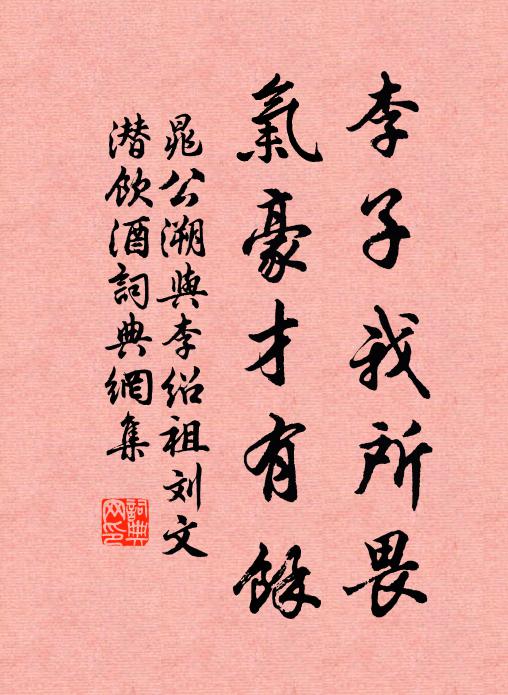 李子我所畏
氣豪才有餘
晁公溯與李绍祖刘文
潜飲酒詞典網集
詞典
网印